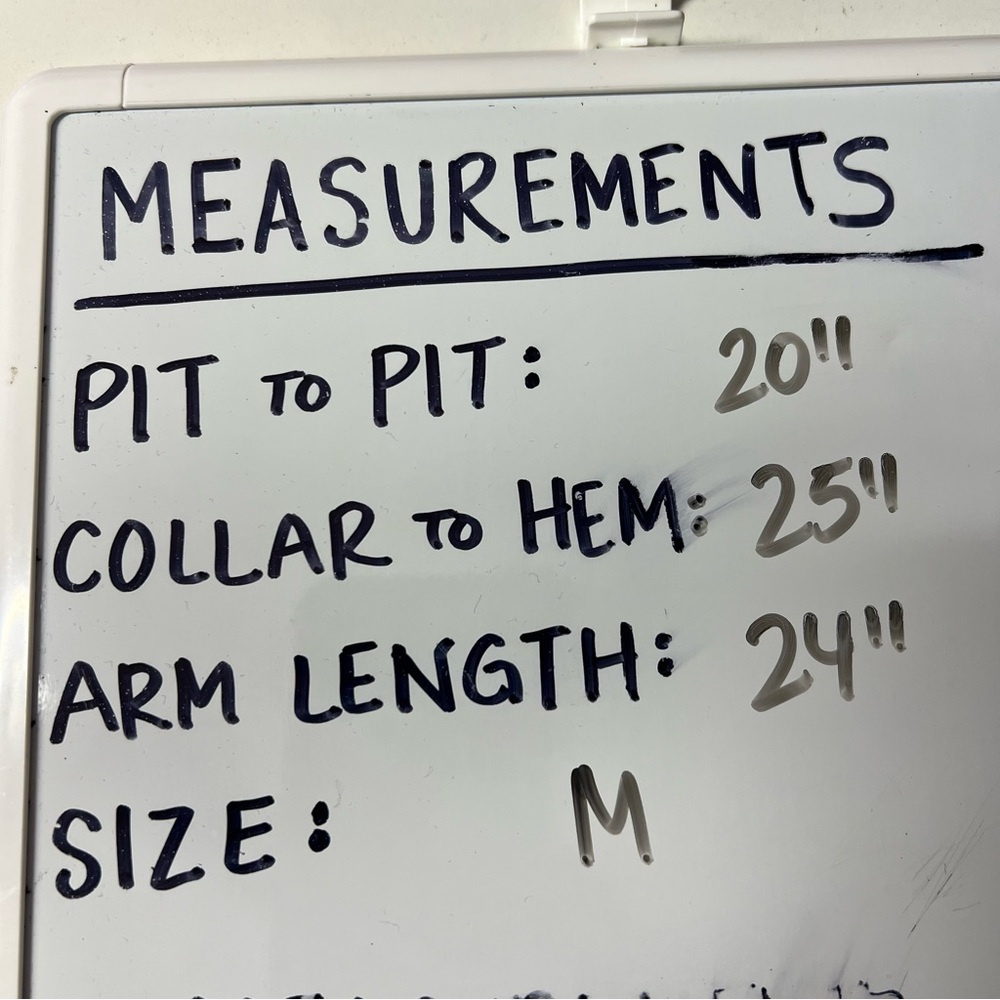 MEASUREMENTS
PIT TO PIT: 20"
COLLAR TO HEM: 25"
ARM LENGTH: 24"
SIZE: M